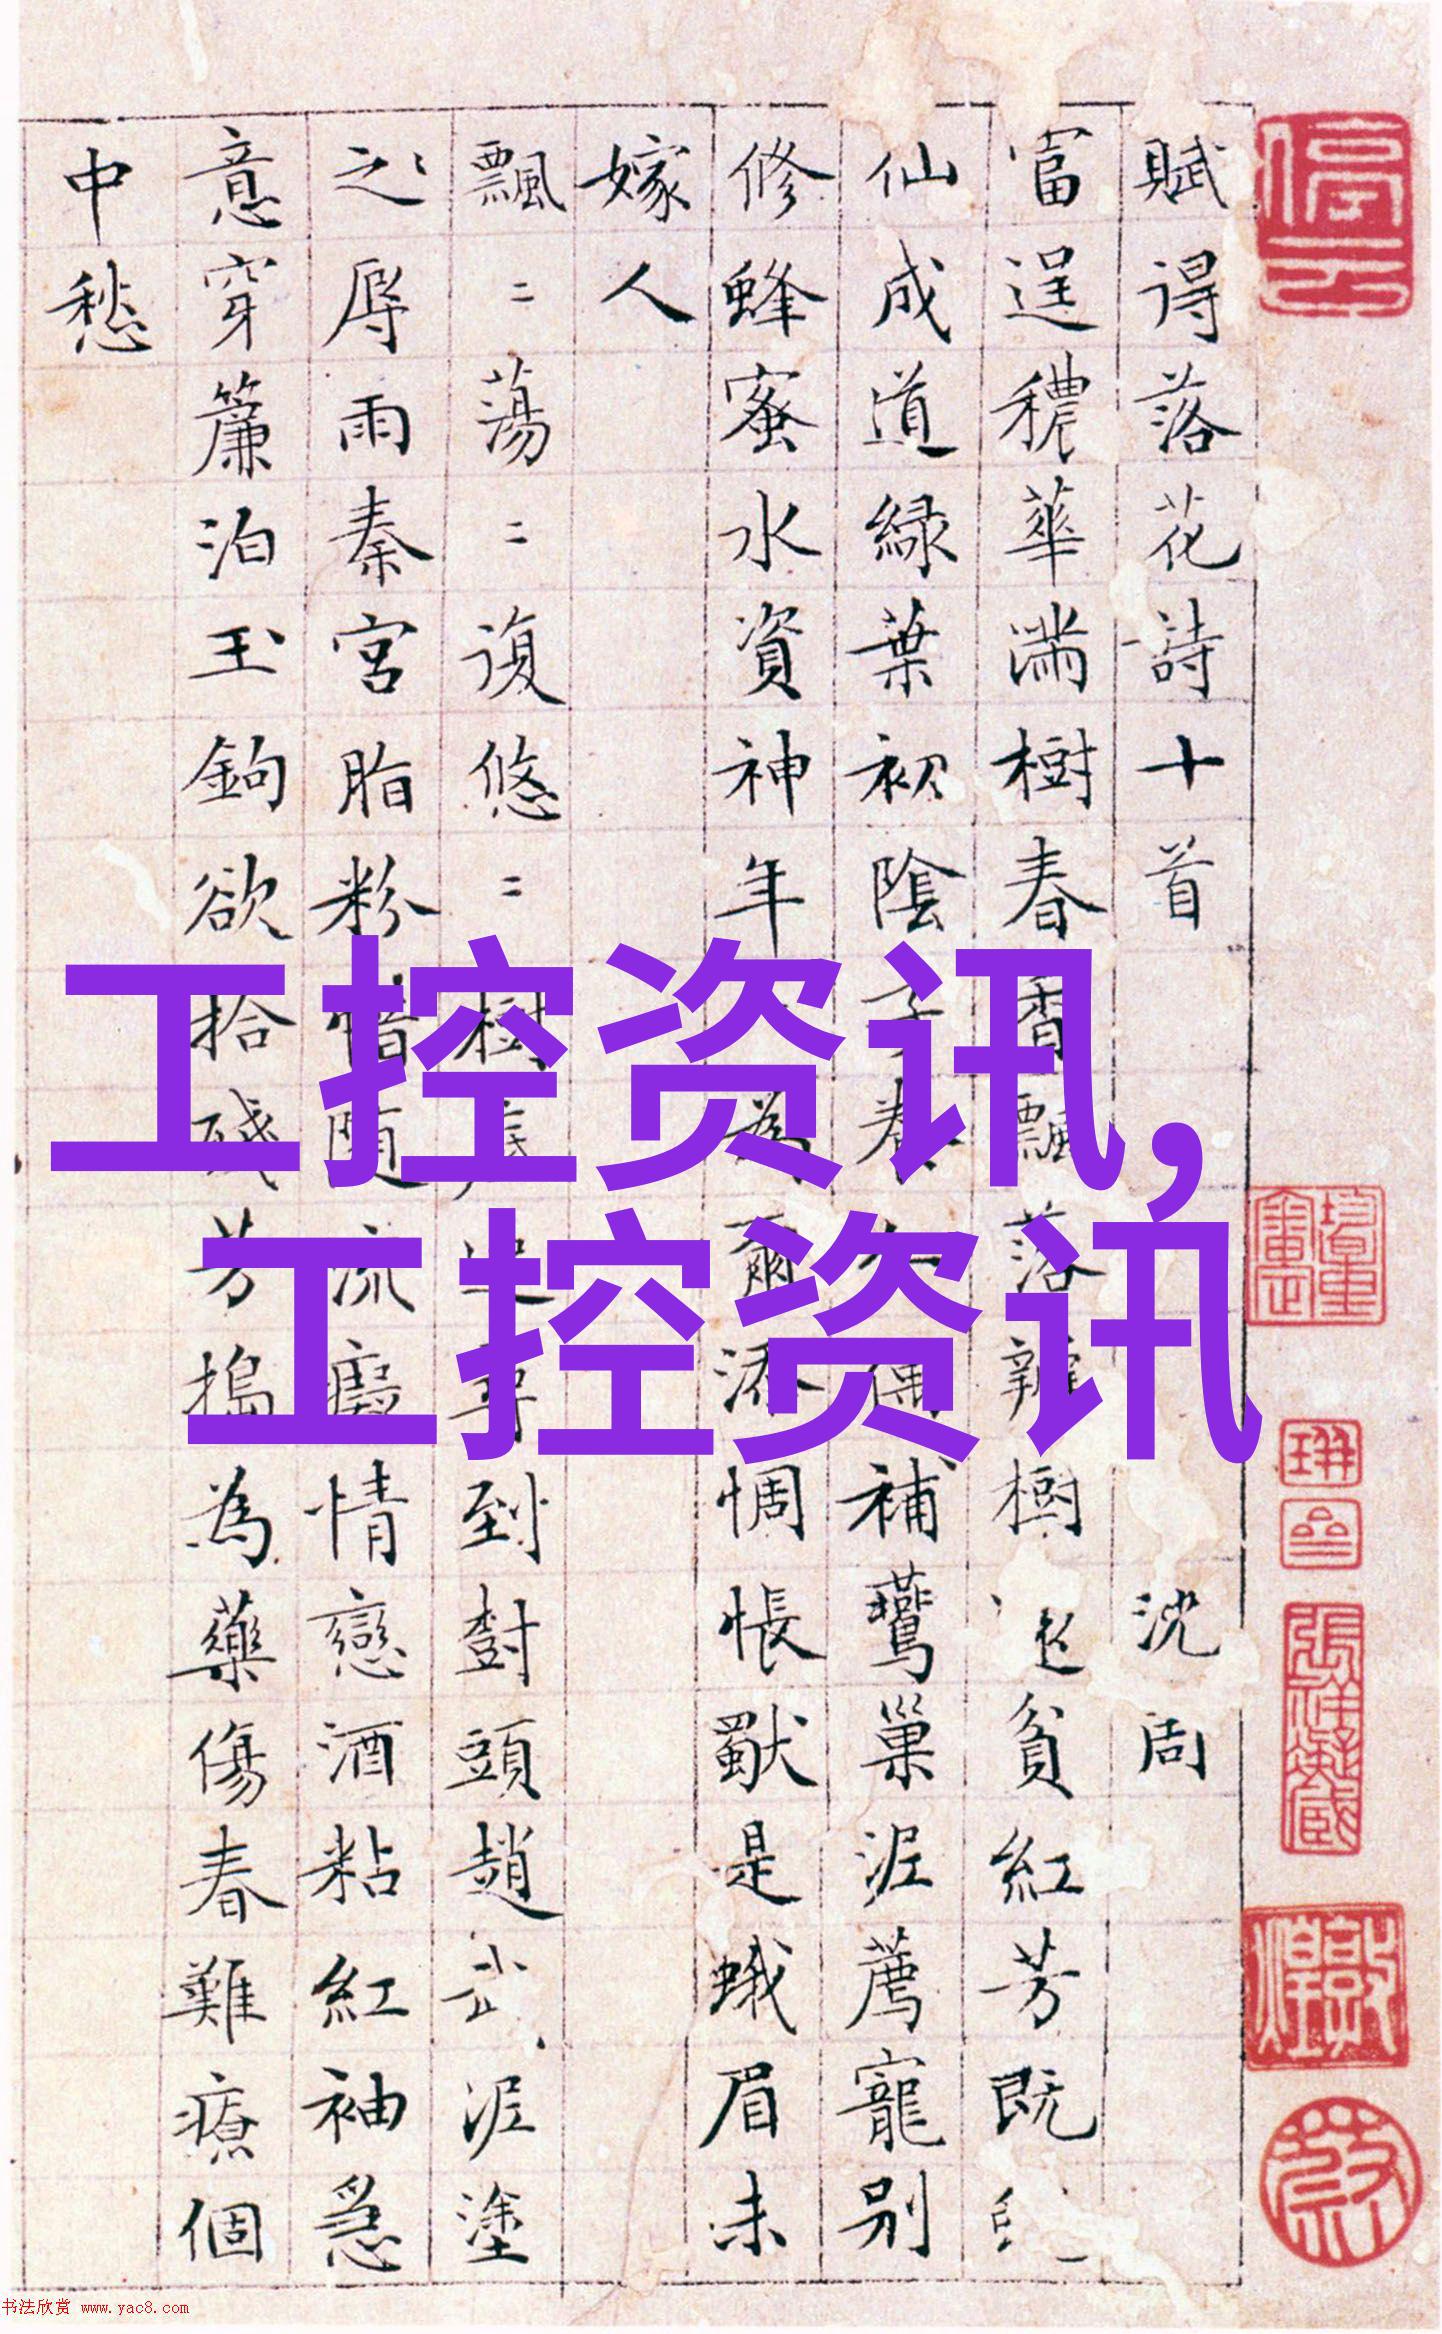 賦得落花詩十首 沈周
富逞穠華滿樹春香飄落瓣樹貧紅芳既
仙成道綠葉初陰補鶯巢泥薦寵別
修蜂蜜水資神年為爾添惆悵獨是蛾眉未
嫁人
飄〻蕩〻復悠〻樹到樹頭趙武泥塗
之辱雨秦宮脂粉惜隨流癡情戀酒粘紅袖急
意穿簾泊玉鉤欲拾殘芳搗為藥傷春難療個
中愁
工控资讯,
工控资讯
停云
书法欣赏 www.yac8.com